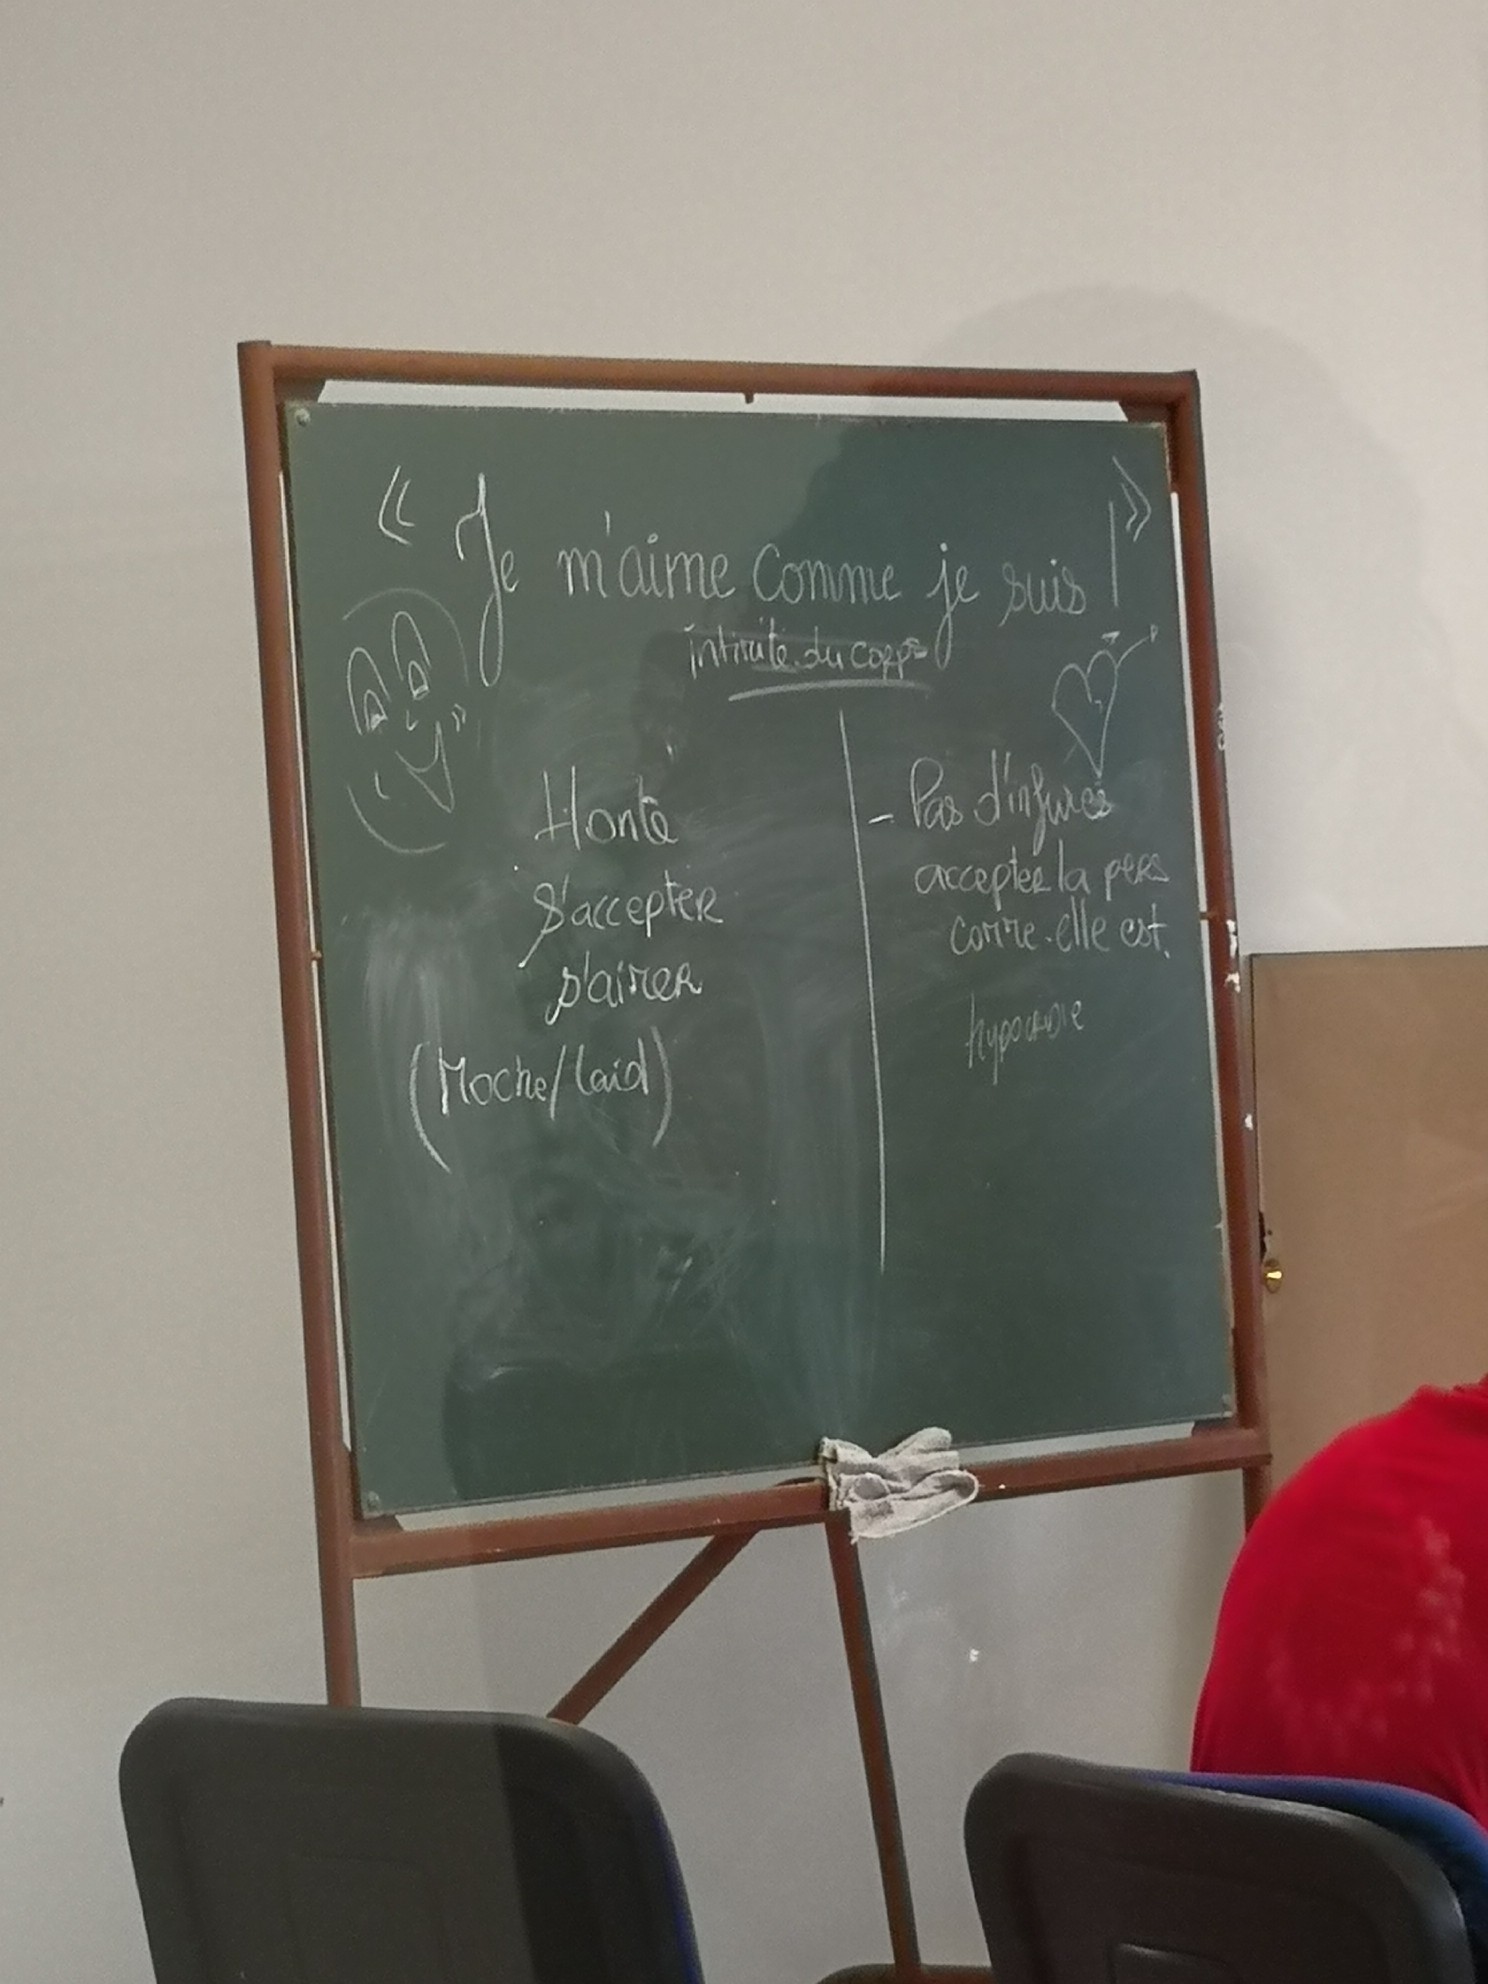 « Je m'aime comme je suis ! »
intimité du corps
Honte
S'accepter
s'aimer
(Moche/laid)
- Pas d'injures
accepter la pers
comme elle est.
hypocrisie